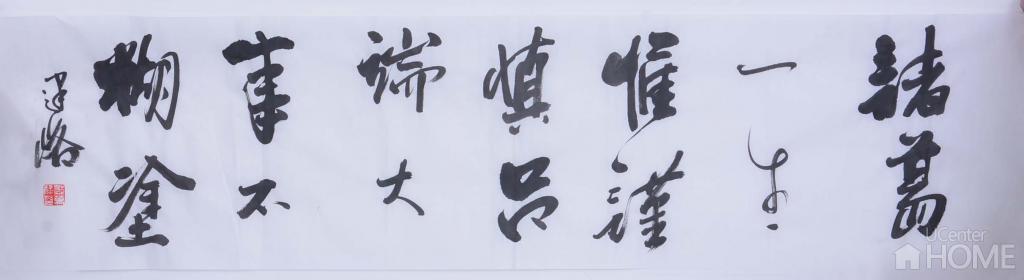 諸葛
一生
惟謹
慎吕
端大
事不
糊塗
UCenter
HOME